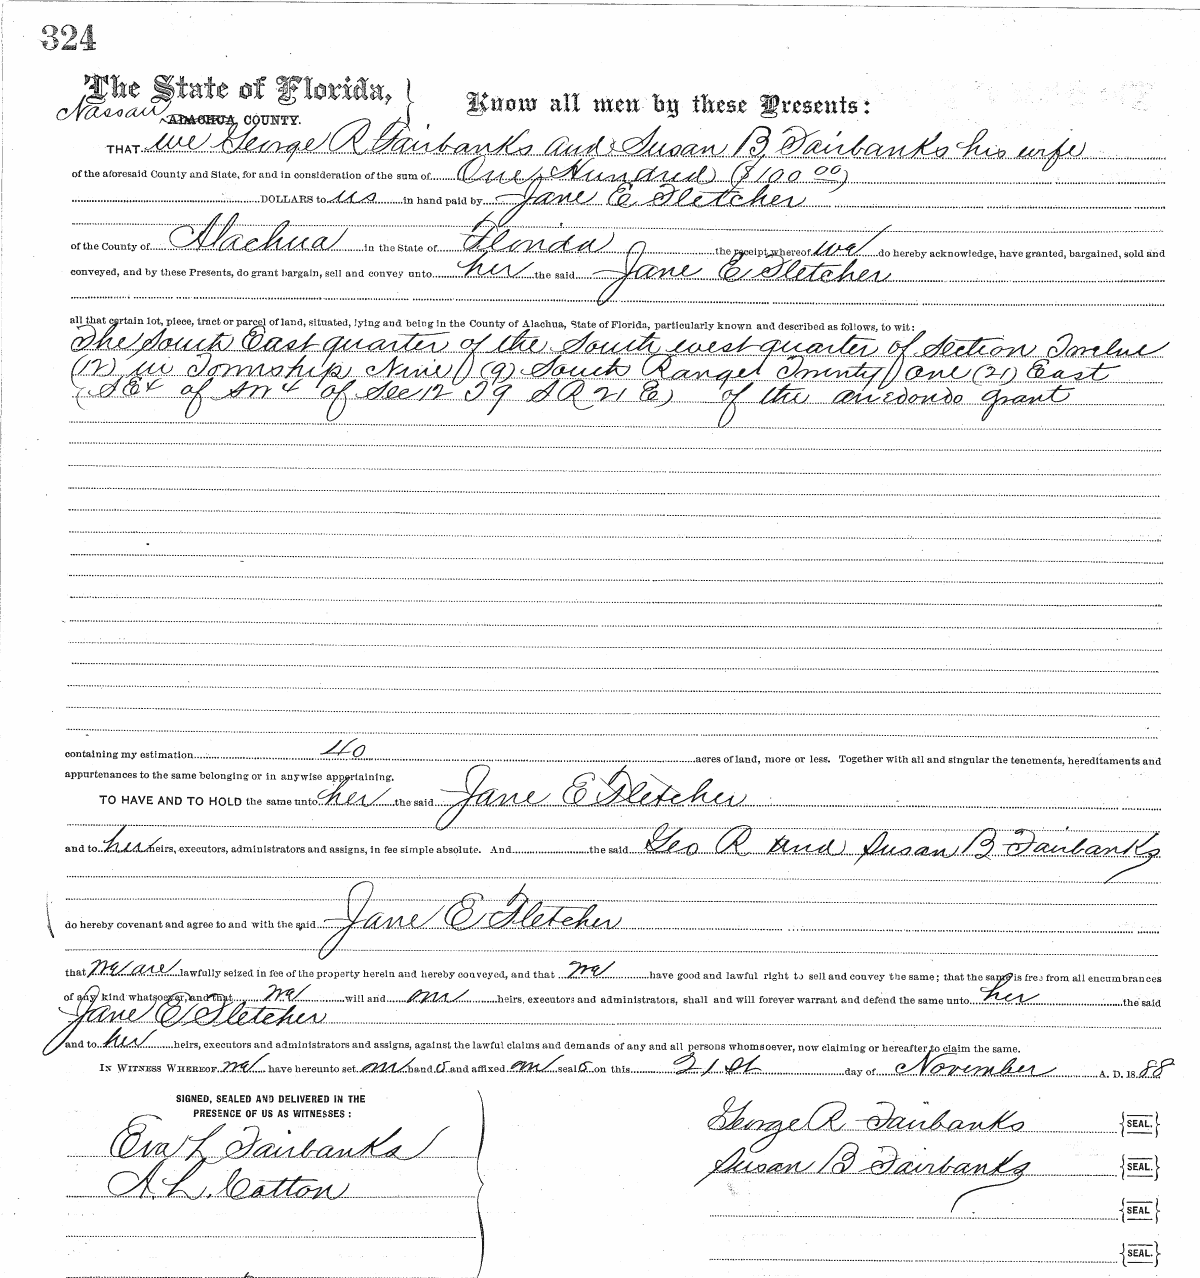 324
The State of Florida,
Nassau ALACHUA COUNTY.
Know all men by these Presents:
THAT we George R Fairbanks and Susan B Fairbanks his wife
of the aforesaid County and State, for and in consideration of the sum of One Hundred ($100 00)
DOLLARS to us in hand paid by Jane E Fletcher
of the County of Alachua in the State of Florida the receipt whereof we do hereby acknowledge, have granted, bargained, sold and
conveyed, and by these Presents, do grant bargain, sell and convey unto her the said Jane E Fletcher
all that certain lot, piece, tract or parcel of land, situated, lying and being in the County of Alachua, State of Florida, particularly known and described as follows, to wit:
The South East quarter of the South west quarter of Section Twelve
(12) in Township Nine (9) South Range Twenty one (21) East
(SE4 of SW4 of Sec 12 T9 S R 21 E) of the arredondo grant
containing my estimation 40 acres of land, more or less. Together with all and singular the tenements, hereditaments and
appurtenances to the same belonging or in anywise appertaining.
TO HAVE AND TO HOLD the same unto her the said Jane E Fletcher
and to her heirs, executors, administrators and assigns, in fee simple absolute. And the said Geo R and Susan B Fairbanks
do hereby covenant and agree to and with the said Jane E Fletcher
that we are lawfully seized in fee of the property herein and hereby conveyed, and that we have good and lawful right to sell and convey the same; that the same is free from all encumbrances
of any kind whatsoever, and that we will and our heirs, executors and administrators, shall and will forever warrant and defend the same unto her the said
Jane E Fletcher
and to her heirs, executors and administrators and assigns, against the lawful claims and demands of any and all persons whomsoever, now claiming or hereafter to claim the same.
IN WITNESS WHEREOF we have hereunto set our hand s and affixed our seal s on this 21st day of November A. D. 18 88
SIGNED, SEALED AND DELIVERED IN THE
PRESENCE OF US AS WITNESSES:
Eva L Fairbanks
A. L. Cotton
George R Fairbanks {SEAL.}
Susan B Fairbanks {SEAL.}
{SEAL}
{SEAL.}